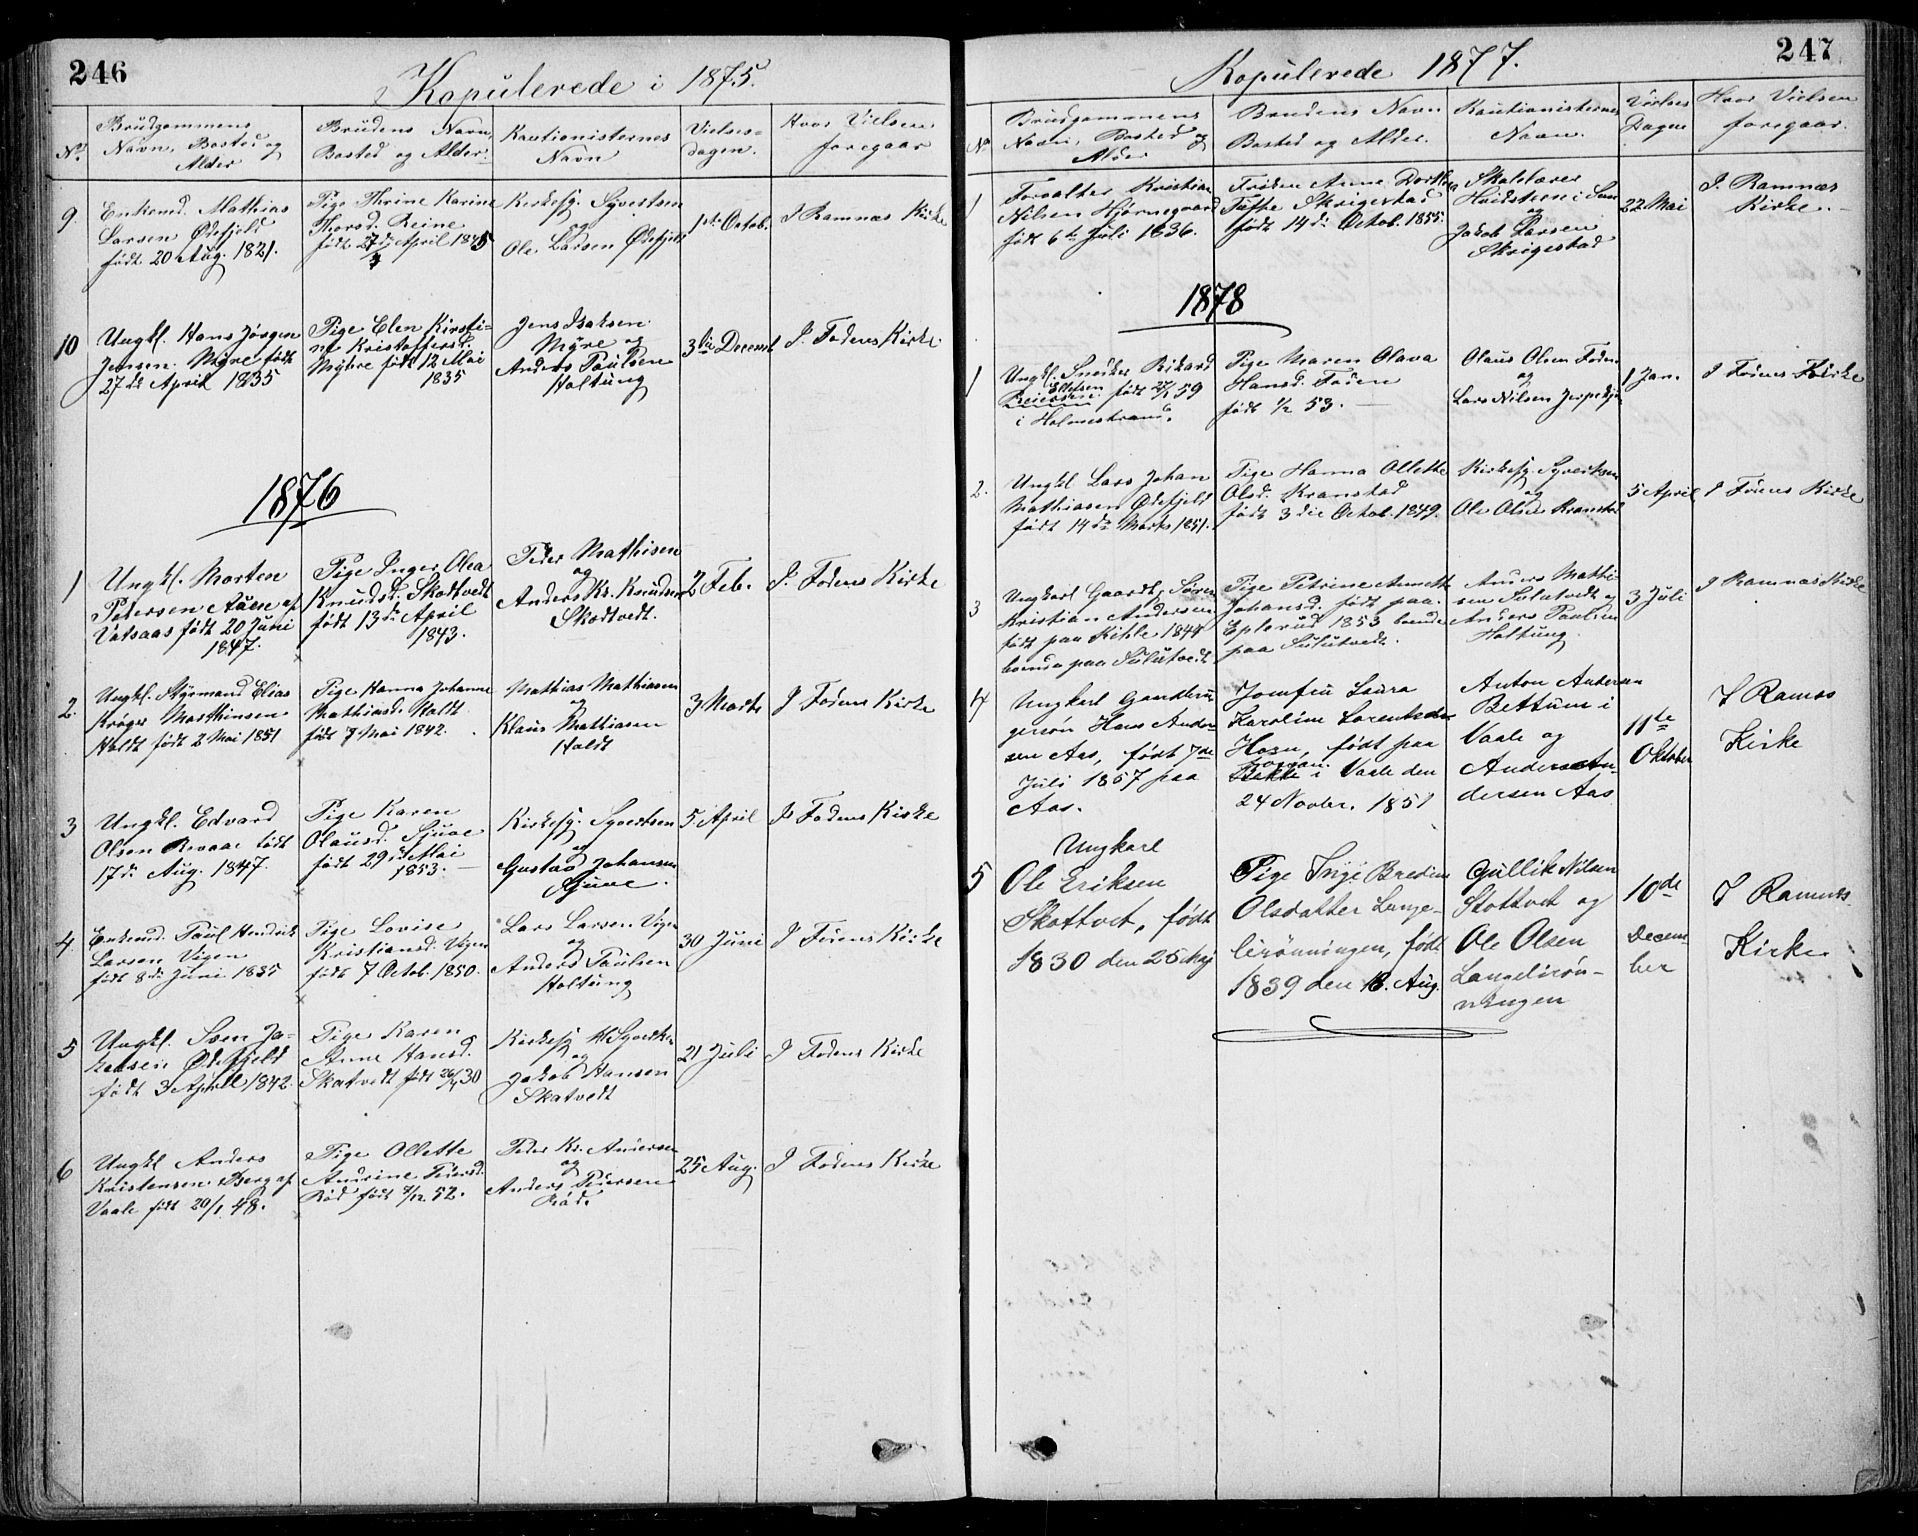 246
Kopulerede i 1875.
No.
Brudgommens
Navn, Bosted og
Alder
Brudens Navn,
Bosted og Alder.
Kautionisternes
Navn
Vielses-
dagen.
Hvor Vielsen
foregaar
9.
Enkemd. Mathias
Larsen Ødefjeld
født 20 Aug. 1821.
Pige Thrine Karine
Thorsd. Reine
født 27de April 1845
Kirkesg. Syvertsen
og
Ole Larsen Ødefjeld
1ste Octob.
I Ramnæs Kirke
10
Ungkl. Hans Jørgen
Jensen. Myre født
27de April 1835
Pige Elen Kirsti-
ne Kristoffersd.
Myhre født 12 Mai
1835
Jens Isaksen
Myre og
Anders Paulsen
Holtung
3die Decemb
I Fodens Kirke
1876
1
Ungkl. Morten
Pedersen Auen af
Vatsaas født 20 Juni
1847.
Pige Inger Olea
Knudsd. Skotvedt
født 13de April
1843.
Peder Mathisen
og
Anders Kr. Knudsen
Skotvedt.
2 Feb.
I Fodens Kirke
2.
Ungkl. Styrmand Elias
Krøger Matthiesen
Holdt født 2 Mai 1851
Pige Hanna Johanne
Mathiasd. Holdt
født 7 Mai 1842.
Mathias Mathiasen
og
Klaus Mathiasen
Holdt
3 Marts
I Fodens Kirke
3
Ungkl. Edvard
Olsen Revaae født
17de Aug. 1847.
Pige Karen
Olausd. Sjuve
født 29de Mai
1853.
Kirkesg. Syvertsen
og
Gustav Johansen
Sjuve.
5 April
I Fodens Kirke
4.
Enkemd. Paul Hendrik
Larsen Vigen
født 8de Juni 1835
Pige Lovise
Kristiansd. Vigen
født 7 Octob. 1850.
Lars Larsen Vigen
og
Anders Paulsen
Holtung
30 Juni
I Fodens Kirke
5
Ungkl. Sven Ja-
kobsen Ødefjeld
født 3 April 1842.
Pige Karen
Anne Hansd.
Skatvedt født 26/4 30
Kirkesg H. Syvertsen
og
Jakob Hansen
Skatvedt
21 Juli
I Fodens Kirke
6
Ungkl Anders
Kristensen Berg af
Vaale født 20/1 48.
Pige Ollette
Andrine Pedersd.
Rød født 4/12 52.
Peder Kr. Andersen
og
Anders Pedersen
Rød
25 Aug.
I Fodens Kirke
247
Kopulerede 1877.
No
Brudgommens
Navn, Bosted og
Alder
Brudens Navn
Bosted og Alder.
Kautionisternes
Navn.
Vielses
Dagen
Hvor Vielsen
foregaar.
1
Forvalter Kristian
Nilsen Hjørnegaard
født 6te Juli 1836.
Frøken Anne Dorthea
Skrigestad
født 14de Octob. 1855
Skolelærer
og
Jakob Larsen
Skrigestad
22 Mai
I. Ramnæs
Kirke.
1878
1
Ungkl. Snedker Rikard
Ellefsen
født 27/1 59
i Holmestrand.
Pige Maren Olava
Hansd. Foden
født 1/2 53.
Olaus Olsen Foden
og
Lars Nilsen
1 Jan.
I Fodens Kirke
2.
Ungkl Lars Johan
Mathiasen Ødefjeld
født 14de Marts 1851.
Pige Hanna Ollette
Olsd. Kranstad
født 3die Octob. 1849.
Kirkesg. Syvertsen
og
Ole Olsen Kranstad
5 April
I Fodens Kirke
3
Ungkarl Gaardbr. Søren
Kristian Andersen
født paa Kihle 1844
boende paa Sulutvedt
Pige Petrine Annette
Johansd. født paa
Eplerud 1853 boende
paa Sulutvedt.
Anders Mathi-
sen Sulutvedt og
Anders Paulsen
Holtung
3 Juli
I Ramnæs Kirke
4
Ungkarl Gaardbru-
gersøn Hans Ander-
sen Aas, født 7de
Juli 1857 paa
Aas.
Jomfru Laura
Karoline Lorentsdtr
født paa
i Vaale den
24 Novbr. 1851
Anton Andersen
Bettum i
Vaale og
Anders An-
dersen Aas
11te
Oktober
I Ramnæs
Kirke
5
Ungkarl
Ole Eriksen
Skottvet, født
1830 den 25 Maj
Pige Inge Bredine
Olsdatter Lange-
lirønningen, født
1839 den 18. Aug.
Gullik Nilsen
Stottvet og
Ole Olsen
Langelirøn-
ningen
10de
Decem-
ber
I Ramnæs
Kirke